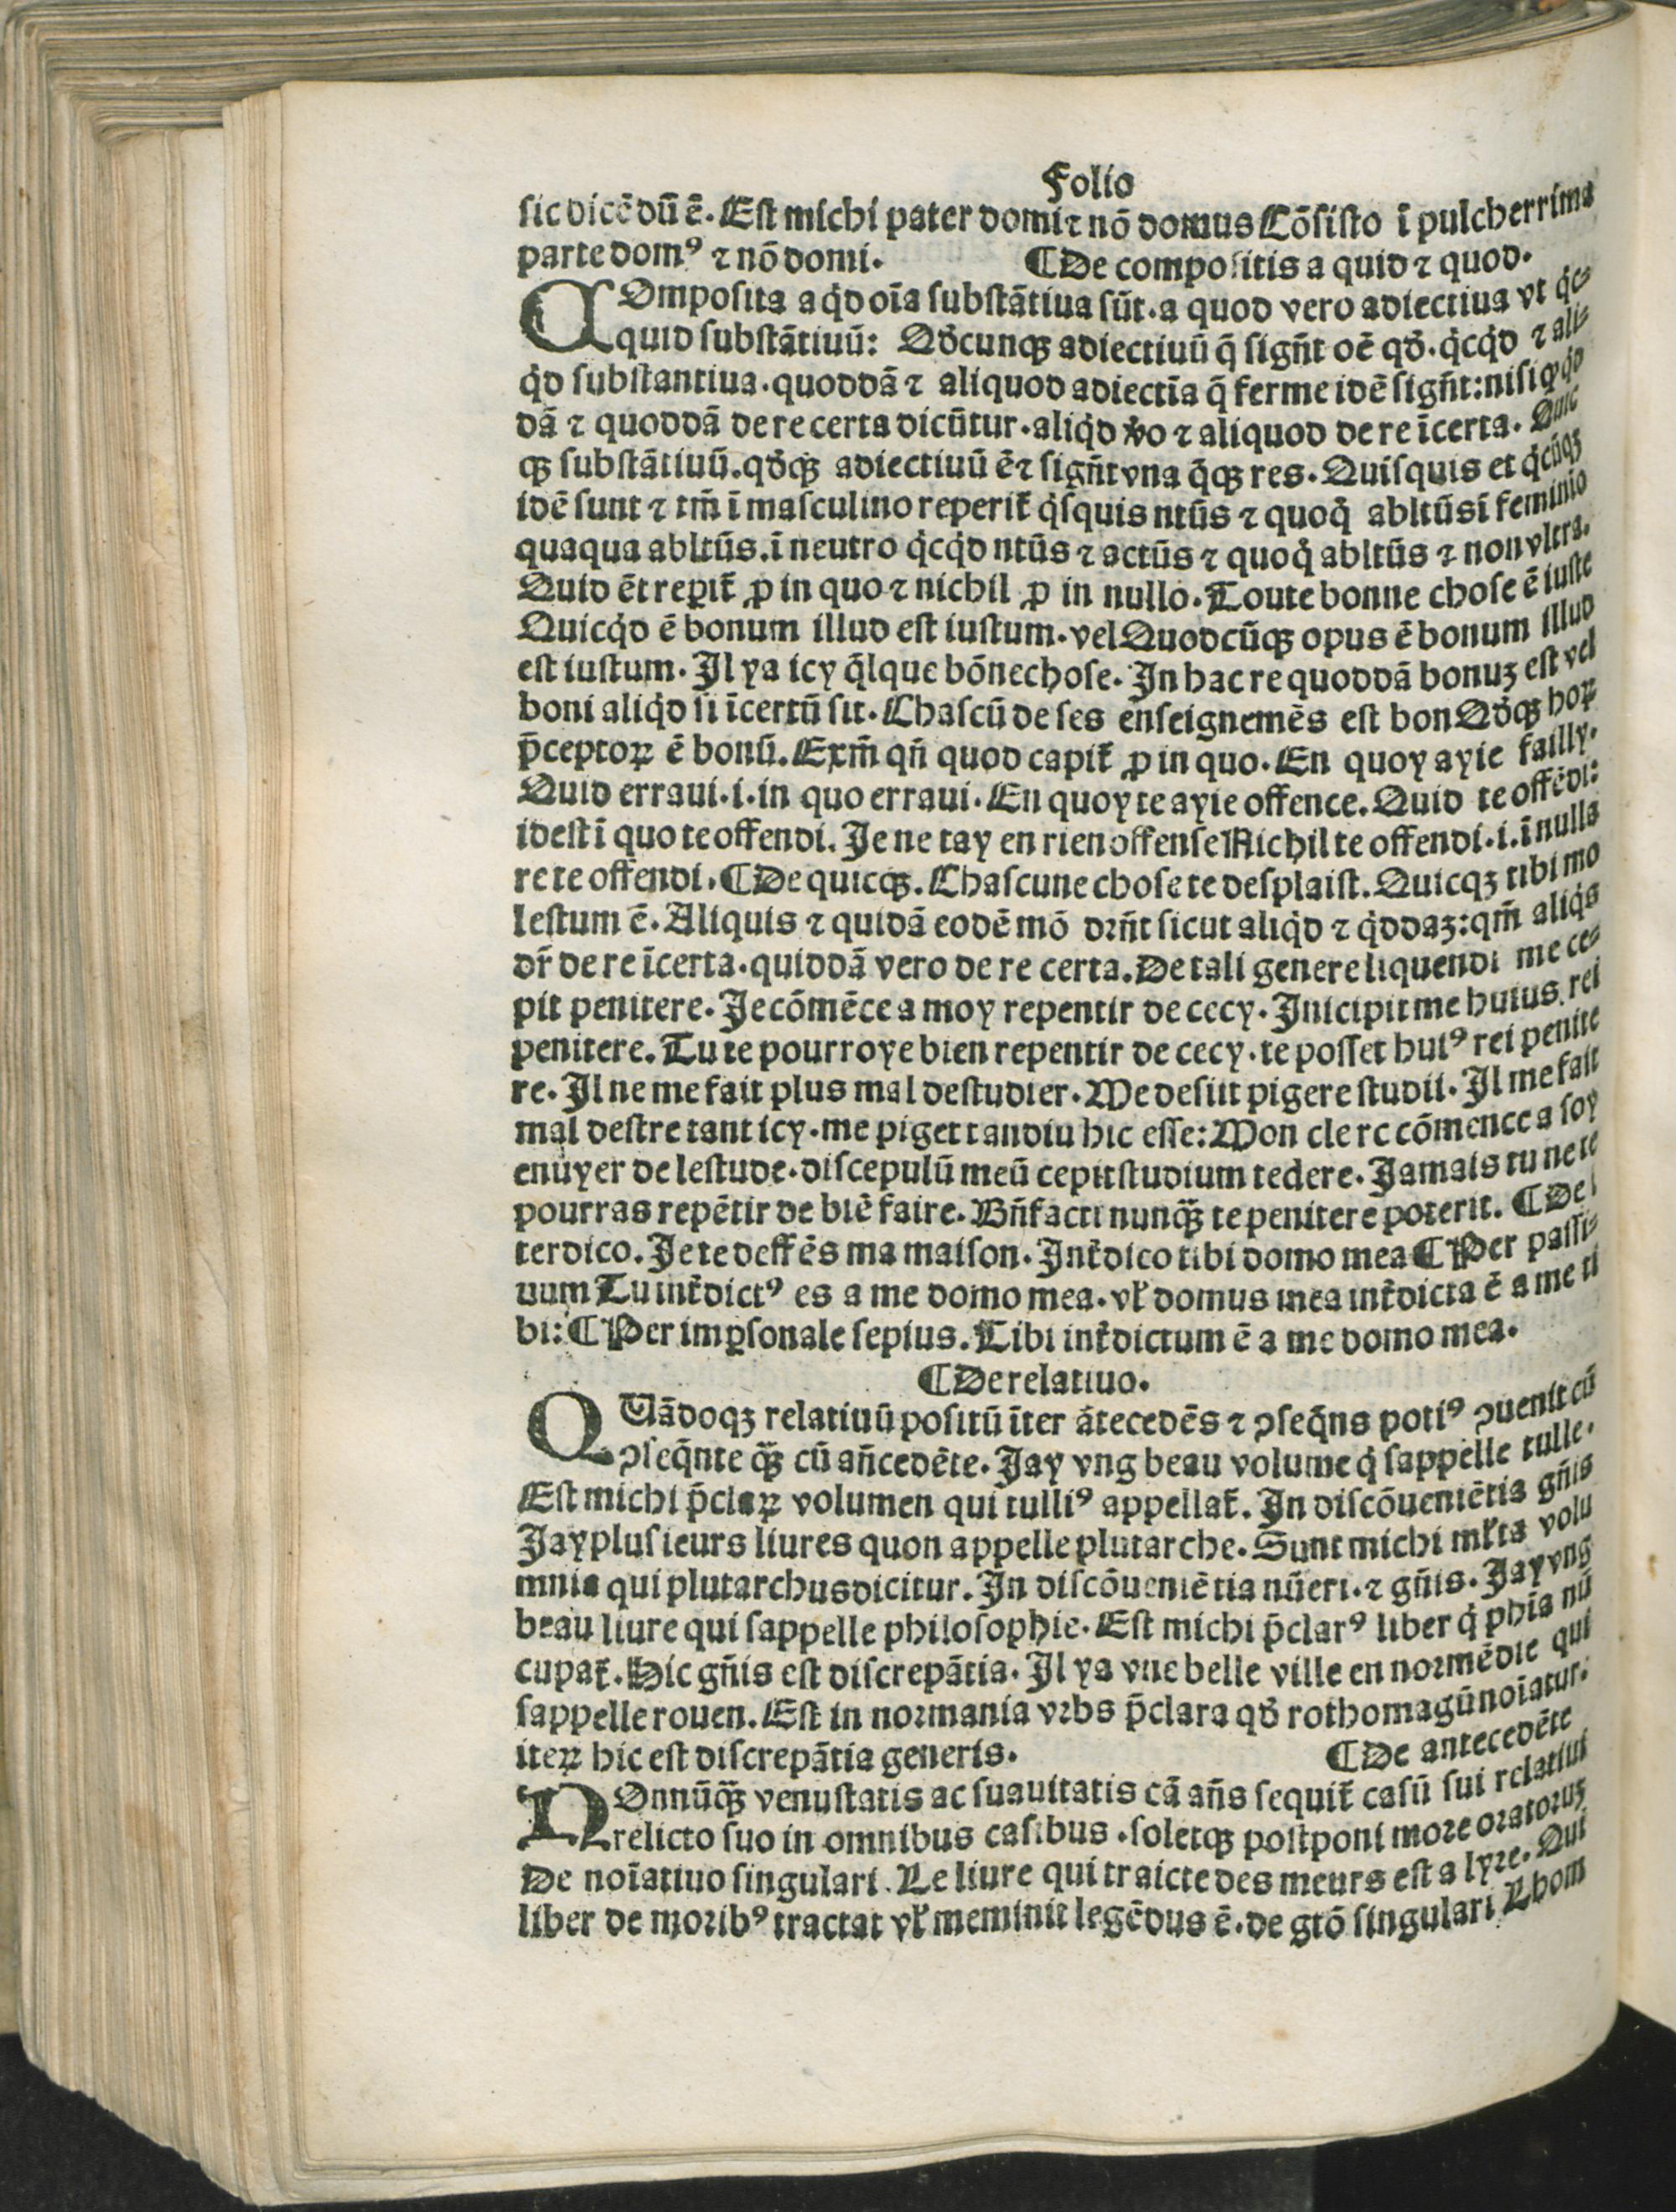 Folio
sic dicēdū ē. Est michi pater domi ⁊ nō domus Cōsisto ī pulcherrima
parte domꝰ ⁊ nō domi. ¶ De compositis a quid ⁊ quod.
COmposita a qͥd oīa substātiua sūt. a quod vero adiectiua vt qͥc⸗
quid substātiuū: Qd̄cunqꝫ adiectiuū q̄ sign̄t oē qd̄. qͥcqͥd ⁊ ali⸗
qͥd substantiua. quoddā ⁊ aliquod adiectīa q̄ ferme idē sign̄t: nisi ꝙ qͥd
dā ⁊ quoddā de re certa dicūtur. aliqͥd v̓o ⁊ aliquod de re īcerta. Quic
qꝫ substātiuū. qd̄qꝫ adiectiuū ē ⁊ sign̄t vna q̄qꝫ res. Quisquis et qͥcūqꝫ
idē sunt ⁊ tm̄ ī masculino reperit̄ qͥsquis ntūs ⁊ quoqͣ abltūs ī feminio
quaqua abltūs. ī neutro qͥcqͥd ntūs ⁊ actūs ⁊ quoqͣ abltūs ⁊ non vltra.
Quid ēt reꝑit̄ ꝓ in quo ⁊ nichil ꝓ in nullo. Toute bonne chose ē iuste
Quicqͥd ē bonum illud est iustum. vel Quodcūqꝫ opus ē bonum illud
est iustum. Il ya icy q̄lque bōne chose. In hac re quoddā bonuꝫ est vel
boni aliqͥd si īcertū sit. Chascū de ses enseignemēs est bon Qd̄qꝫ hoꝝ
p̄ceptoꝝ ē bonū. Exm̄ qn̄ quod capit̄ ꝓ in quo. En quoy ayie failly.
Quid erraui. i. in quo erraui. En quoy te ayie offence. Quid te offēdi:
idest ī quo te offendi. Je ne tay en rien offense Nichil te offendi. i. ī nulla
re te offendi. ¶ De quicqꝫ. Chascune chose te desplaist. Quicqꝫ tibi mo
lestum ē. Aliquis ⁊ quidā eodē mō drn̄t sicut aliqͥd ⁊ qͥddaꝫ: qm̄ aliqͥs
dr̄ de re īcerta. quiddā vero de re certa. De tali genere liquendi me ce⸗
pit penitere. Je cōmēce a moy repentir de cecy. Inicipit me huius rei
penitere. Tu te pourroye bien repentir de cecy. te posset huiꝰ rei penite
re. Il ne me fait plus mal destudier. Me desiit pigere studii. Il me fait
mal destre tant icy. me piget tandiu hic esse: Mon clerc cōmence a soy
enuyer de lestude. discepulū meū cepit studium tedere. Jamais tu ne te
pourras repētir de biē faire. Bn̄facti nunqͣꝫ te penitere poterit. ¶ De i
terdico. Je te deffēs ma maison. Int̄dico tibi domo mea ¶ Per passi⸗
uum Tu int̄dictꝰ es a me domo mea. vl̓ domus mea int̄dicta ē a me ti
bi: ¶ Per imꝑsonale sepius. Tibi int̄dictum ē a me domo mea.
¶ De relatiuo.
QUādoqꝫ relatiuū positū īter ātecedēs ⁊ ꝯseq̄ns potiꝰ ꝯuenit cū
ꝯseq̄nte qͣꝫ cū an̄cedēte. Jay vng beau volume qͥ sappelle tulle.
Est michi p̄claꝝ volumen qui tulliꝰ appellat̄. In discōueniētia gn̄is
Jay plusieurs liures quon appelle plutarche. Sunt michi ml̓ta volu
mnia qui plutarchus dicitur. In discōueniētia nūeri. ⁊ gn̄is. Jay vng
beau liure qui sappelle philosophie. Est michi p̄clarꝰ liber qͥ phīa nū
cupat̄. Hic gn̄is est discrepātia. Il ya vne belle ville en normēdie qui
sappelle rouen. Est in normania vrbs p̄clara qd̄ rothomagū noīatur.
iteꝝ hic est discrepātia generis. ¶ De antecedēte
NOnnūqͣꝫ venustatis ac suauitatis cā an̄s sequit̄ casū sui relatiui
relicto suo in omnibus casibus. soletqꝫ postponi more oratoruꝫ
De noīatiuo singulari. Le liure qui traicte des meurs est a lyre. Qui
liber de moribꝰ tractat vl̓ meminit legēdus ē. de gtō singulari Lhom